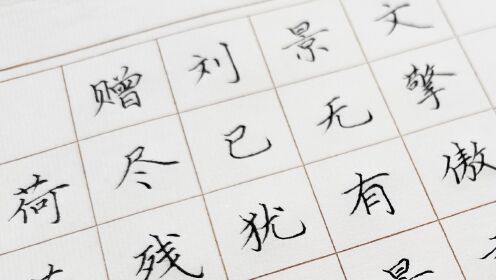 赠刘景文
荷尽已无擎
残犹有傲
景